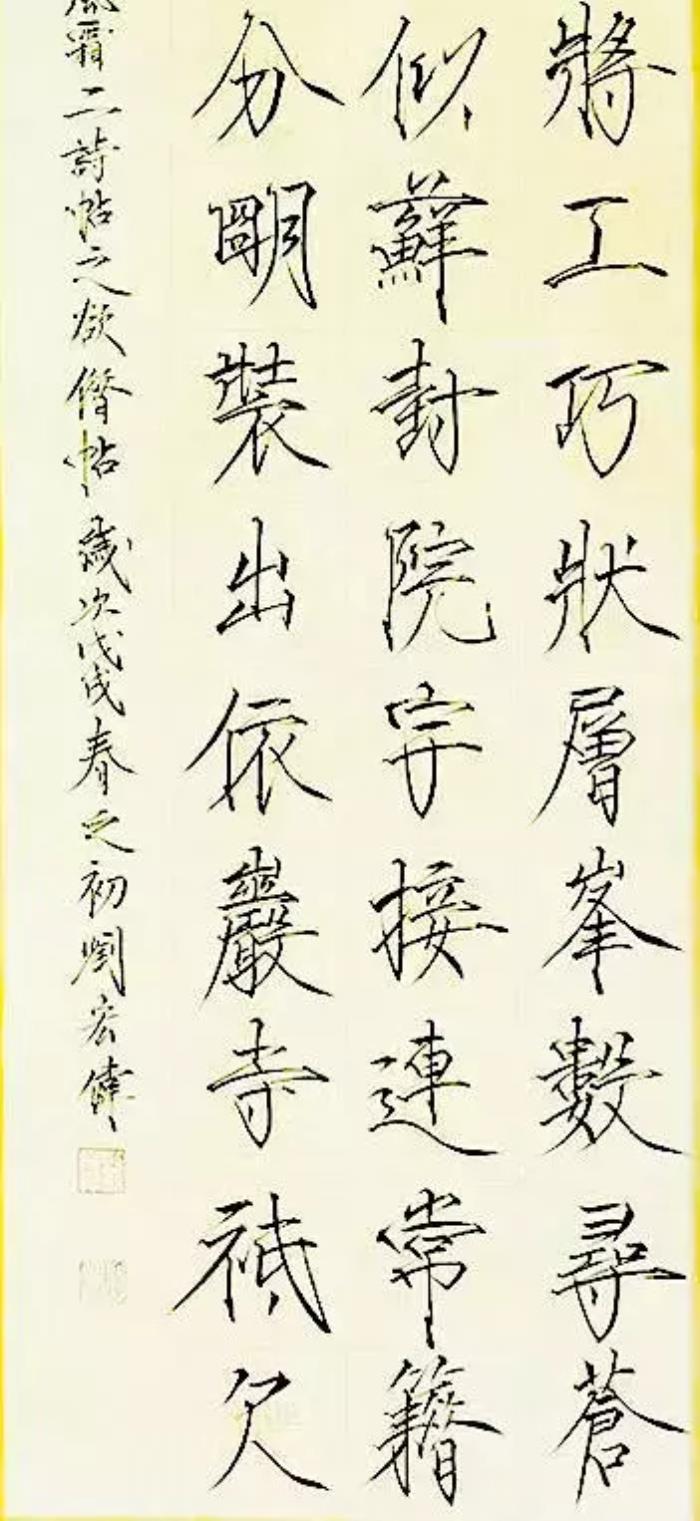 將工巧狀層峯數尋蒼
似蘚封院宇接連常籍
分明裝出依巖寺祇欠
風霜二詩帖之欲僭帖歲次戊戌春之初劉宏偉